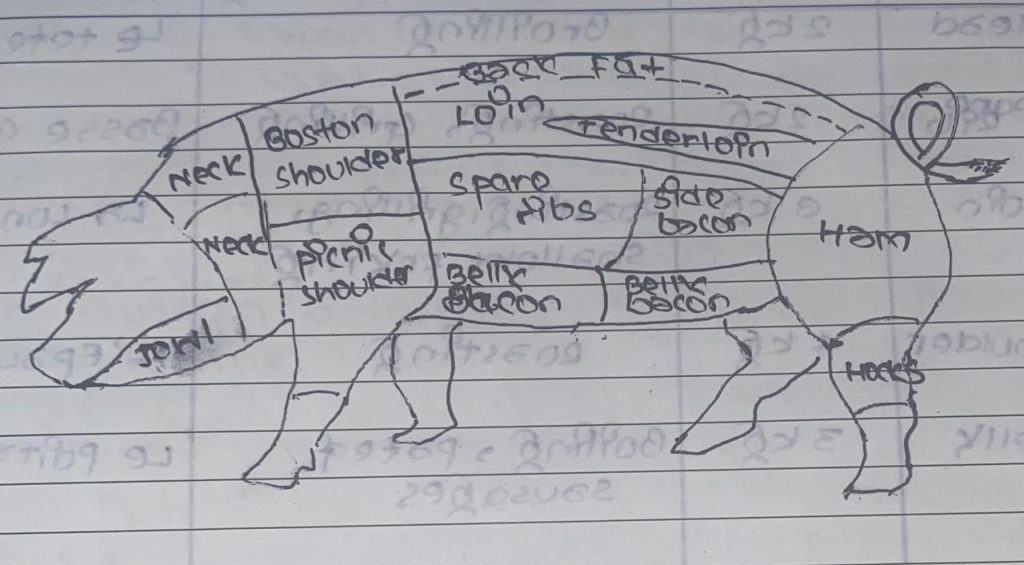 Back Fat
Loin
Tenderloin
Boston
shoulder
Neck
Spare
ribs
Side
bacon
Ham
Neck
picnic
shoulder
Belly
Bacon
Belly
bacon
Jowl
Hocks